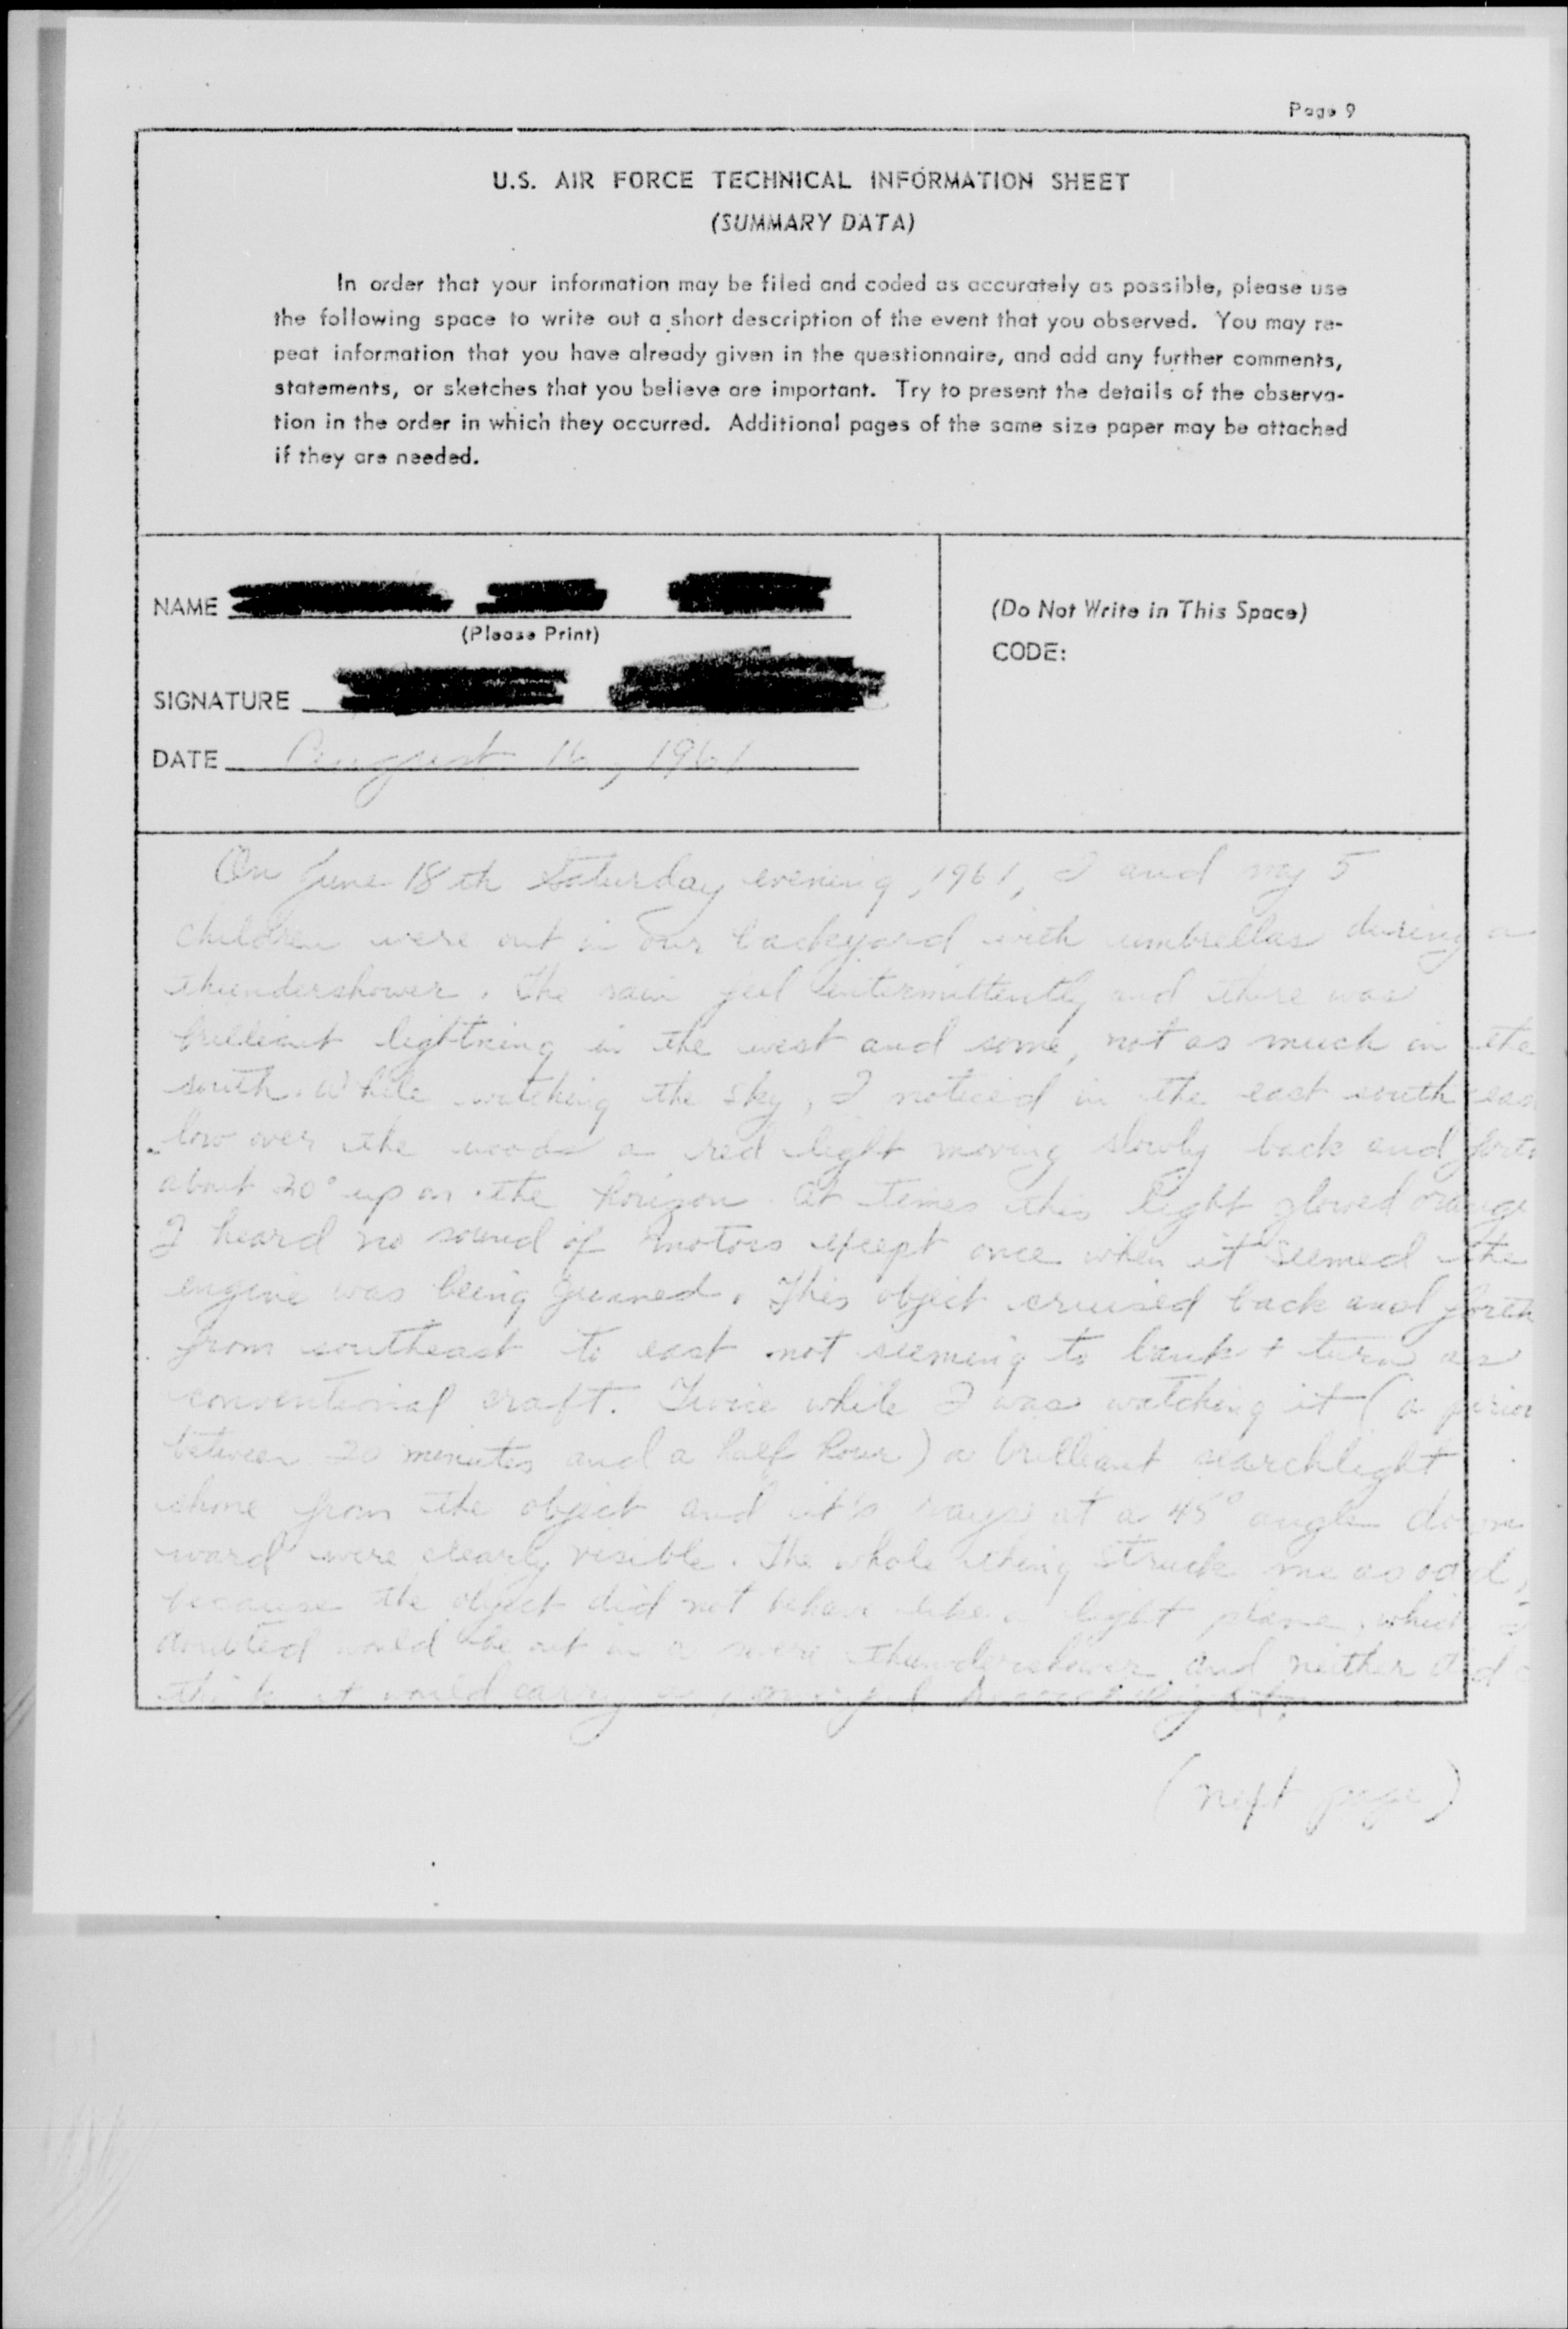 Page 9
U.S. AIR FORCE TECHNICAL INFORMATION SHEET
(SUMMARY DATA)
In order that your information may be filed and coded as accurately as possible, please use
the following space to write out a short description of the event that you observed. You may re-
peat information that you have already given in the questionnaire, and add any further comments,
statements, or sketches that you believe are important. Try to present the details of the observa-
tion in the order in which they occurred. Additional pages of the same size paper may be attached
if they are needed.
NAME
(Please Print)
SIGNATURE
DATE August 16, 1961
(Do Not Write in This Space)
CODE:
On June 18th Saturday evening, 1961, I and my 5
children were out in our backyard with umbrellas during a
thundershower. The rain fell intermittently and there was
brilliant lightning in the west and some, not as much in the
south. While watching the sky, I noticed in the east south eas
low over the woods a red light moving slowly back and forth
about 20° up on the horizon. At times this light glowed orange
I heard no sound of motors except once when it seemed the
engine was being gunned. This object cruised back and forth
from southeast to east not seeming to bank + turn as
conventional craft. Twice while I was watching it (a perio
between 20 minutes and a half hour) a brilliant searchlight
shone from the object and it's rays at a 45° angle down
ward were clearly visible. The whole thing struck me as odd,
because the object did not behave like a light plane, which I
doubted would be out in a severe thundershower and neither did
think it would carry a powerful searchlight.
(next page)